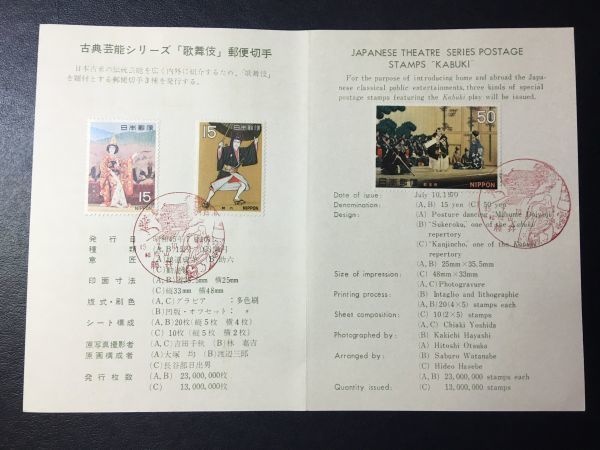 古典芸能シリーズ「歌舞伎」郵便切手
日本古来の伝統芸能を広く内外に紹介するため、「歌舞伎」
を題材とする郵便切手3種を発行する。
日本郵便
15
NIPPON
15
日本郵便
NIPPON
発行日
種類
意匠
印面寸法 横25mm
(C)縦33mm 横48mm
版式・刷色 (A,C)グラビア :多色刷
(B)凹版・オフセット: 〃
シート構成 (A,B)20枚(縦5枚 横4枚)
(C) 10枚(縦5枚 横2枚)
原写真撮影者 (A,C)吉田千秋 (B)林 嘉吉
原画構成者 (A)大塚 均 (B)渡辺三郎
(C)長谷部日出男
発行枚数 (A,B) 23,000,000枚
(C) 13,000,000枚
JAPANESE THEATRE SERIES POSTAGE
STAMPS "KABUKI"
For the purpose of introducing home and abroad the Japa-
nese classical public entertainments, three kinds of special
postage stamps featuring the Kabuki play will be issued.
50
日本郵便
NIPPON
Date of issue: July 10, 1970
Denomination: (A, B) 15 yen (C) 50 yen
Design: (A) Posture dancing "Musume Dojyoji"
(B) "Sukeroku," one of the Kabuki
repertory
(C) "Kanjincho," one of the Kabuki
repertory
Size of impression: (A, B) 25mm×35.5mm
(C) 48mm×33mm
Printing process: (A, C) Photogravure
(B) Intaglio and lithographic
Sheet composition: (A, B) 20(4×5) stamps each
(C) 10(2×5) stamps
Photographed by: (A, C) Chiaki Yoshida
(B) Kakichi Hayashi
Arranged by: (A) Hitoshi Otsuka
(B) Saburo Watanabe
(C) Hideo Hasebe
Quantity issued: (A, B) 23,000,000 stamps each
(C) 13,000,000 stamps